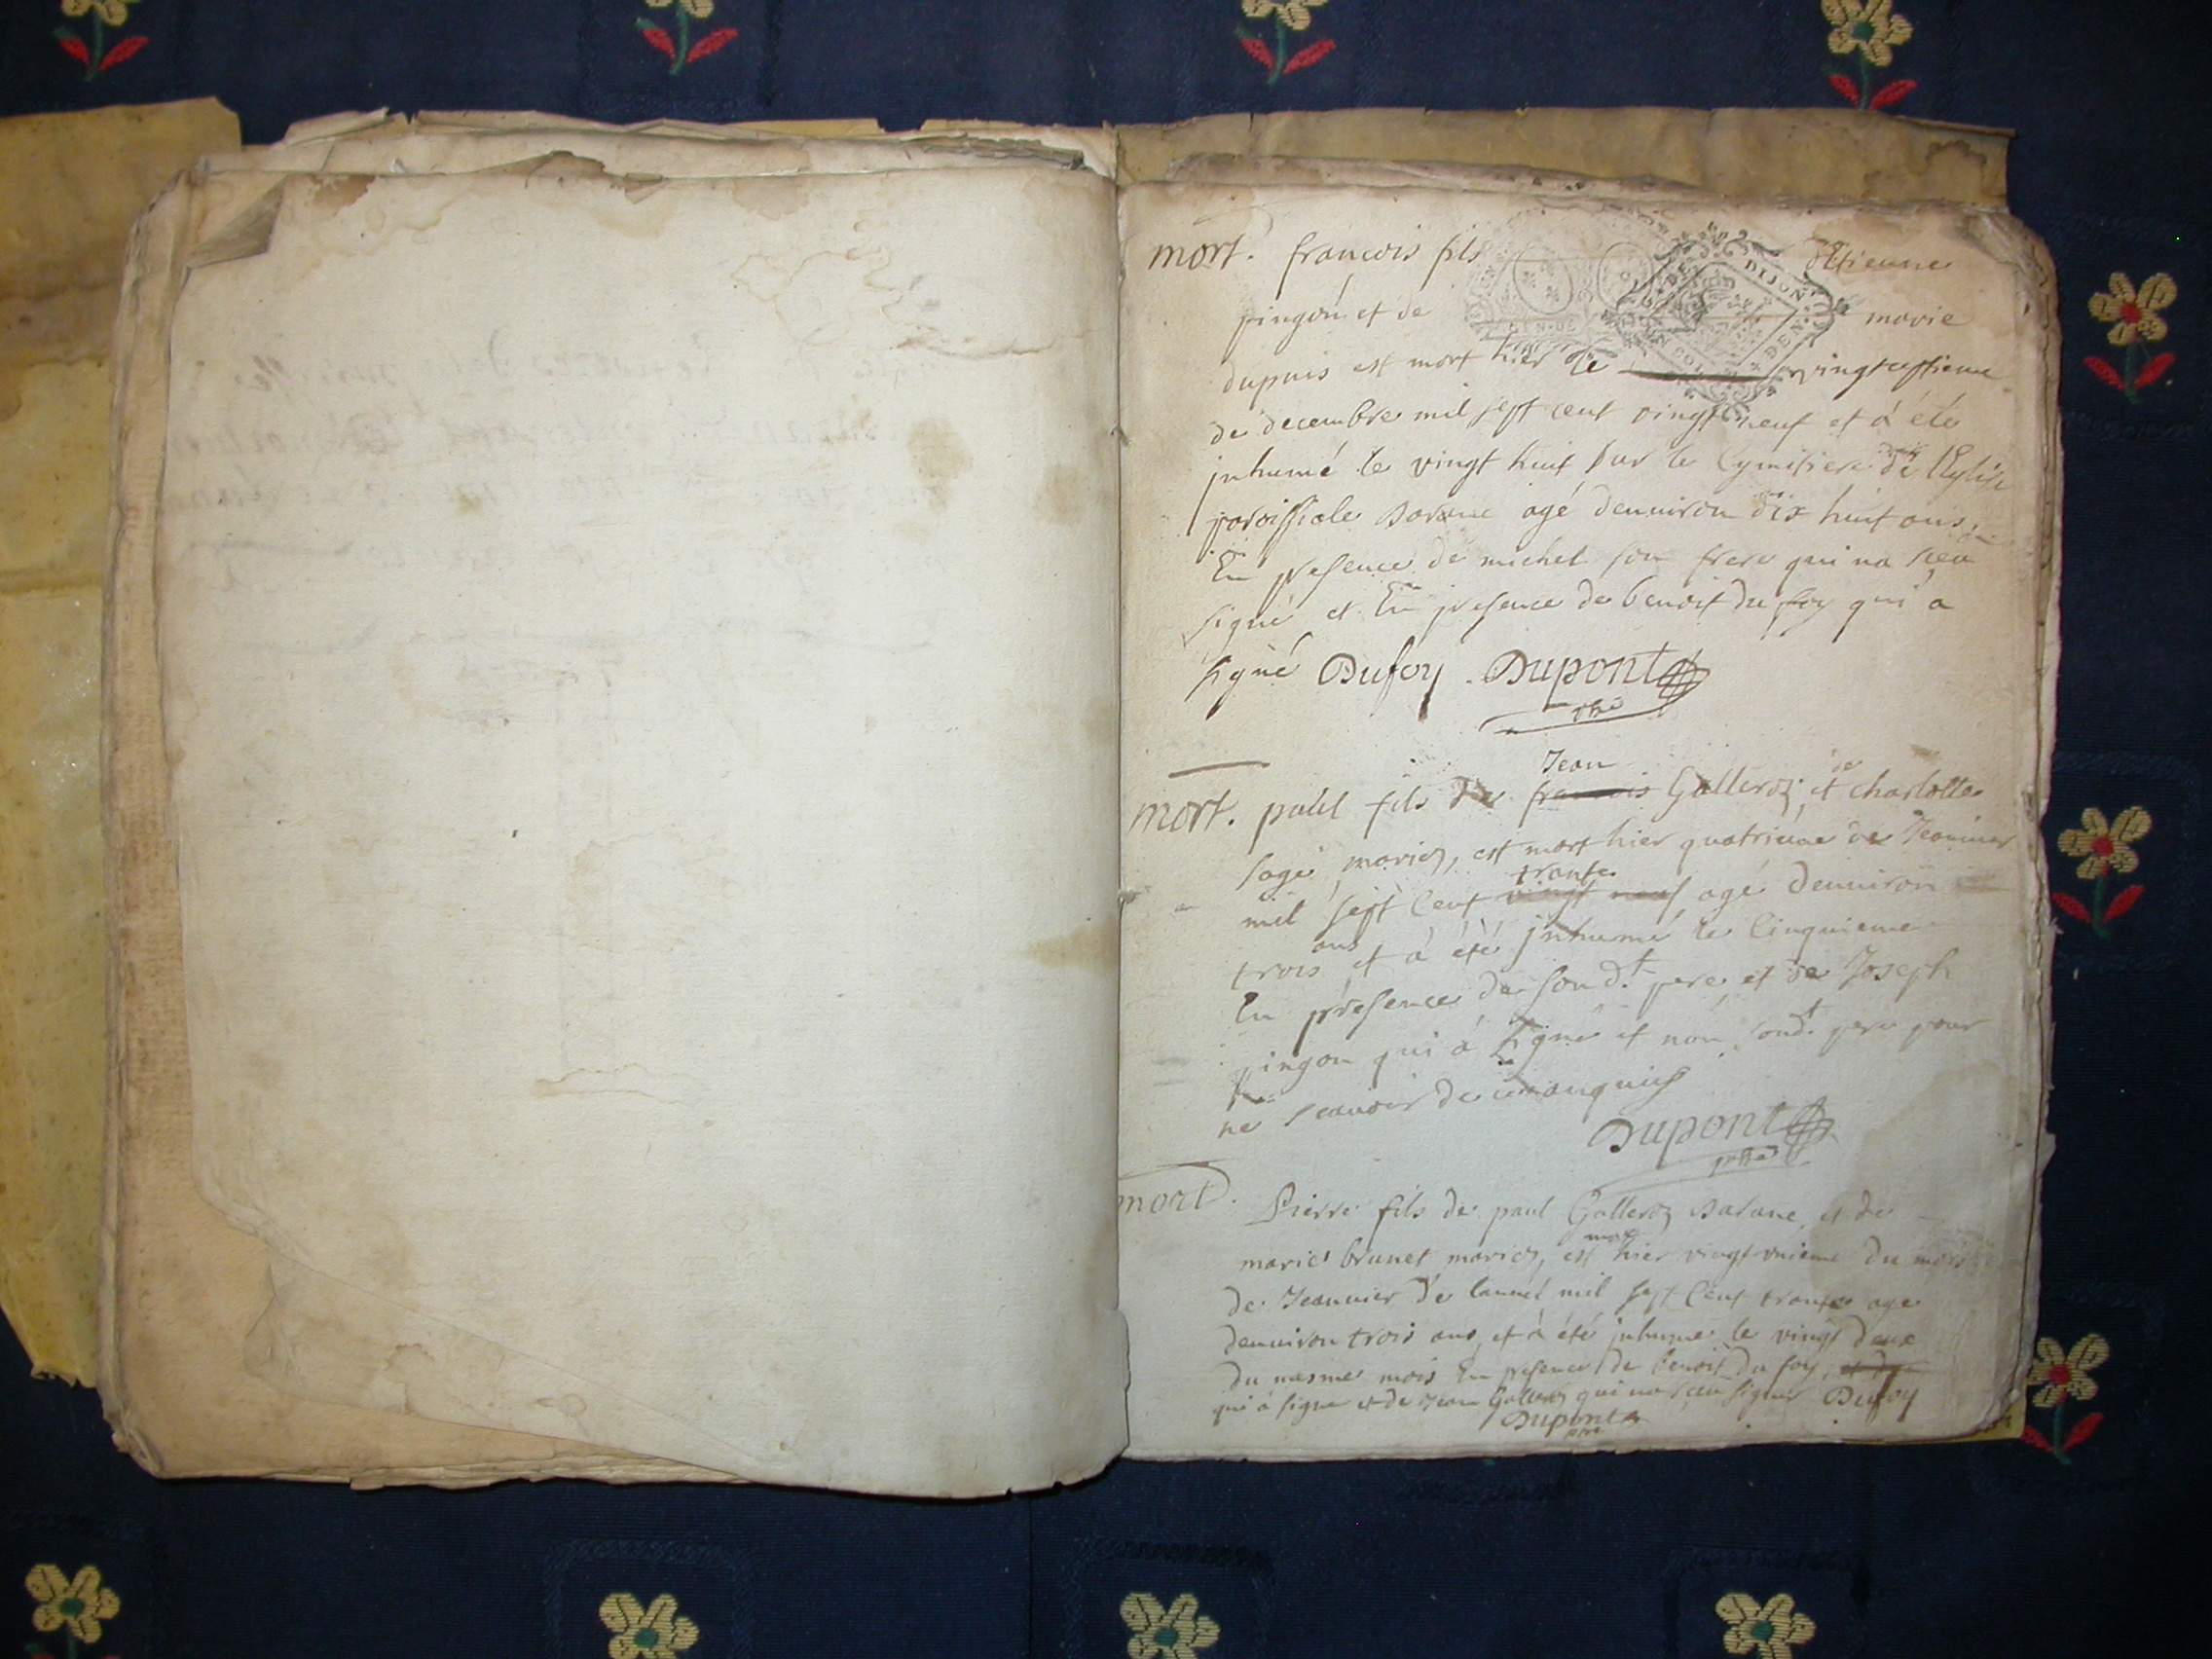 mort. francois fils d'Etienne
pingon et de marie
dupuis est mort hier le vingtseptieme
de decembre mil sept cent vingt neuf et à été
inhumé le vingt huit sur le Cymitiere de l'Eglise
paroissiale agé denuiron dix huit ans,
En presence de michel son frere qui na sceu
signé et En presence de benoit du foy qui a
signé Dufoy. Dupont
ptre
Jean
mort. paul fils de francois Galleroz, et de charlotte
sage mariez, est mort hier quatrieme de Jeanuier
trante
mil sept Cent vingt neuf agé denuiron
trois ans et à été inhumé le Cinquieme
En presence de sond.t pere et de Joseph
pingon qui à signé et non sond.t pere pour
ne scauoir de ce enquis
Dupont
ptre
mort. Pierre fils de paul Galleroz et de
mort
marie brunet mariez, est hier vingt unieme du mois
de Jeanuier de lanné mil sept Cent trante age
denuiron trois ans, et à été inhumé le vingt deux
du mesme mois En presence de benoit du foy, et de
qui à signe et de Jean Galleroz qui na sceu signer Dufoy
Dupont
ptre
DE DIJON